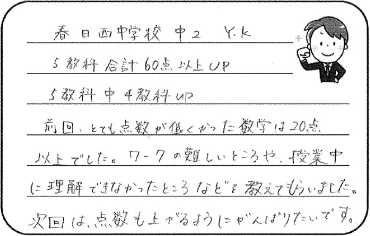 春日西中学校 中2 Y.K
5教科合計60点以上UP
5教科中4教科UP
前回、とても点数が低くかった数学は20点
以上でした。ワークの難しいところや、授業中
に理解できなかったところなどを教えてもらいました。
次回は、点数も上がるようにがんばりたいです。